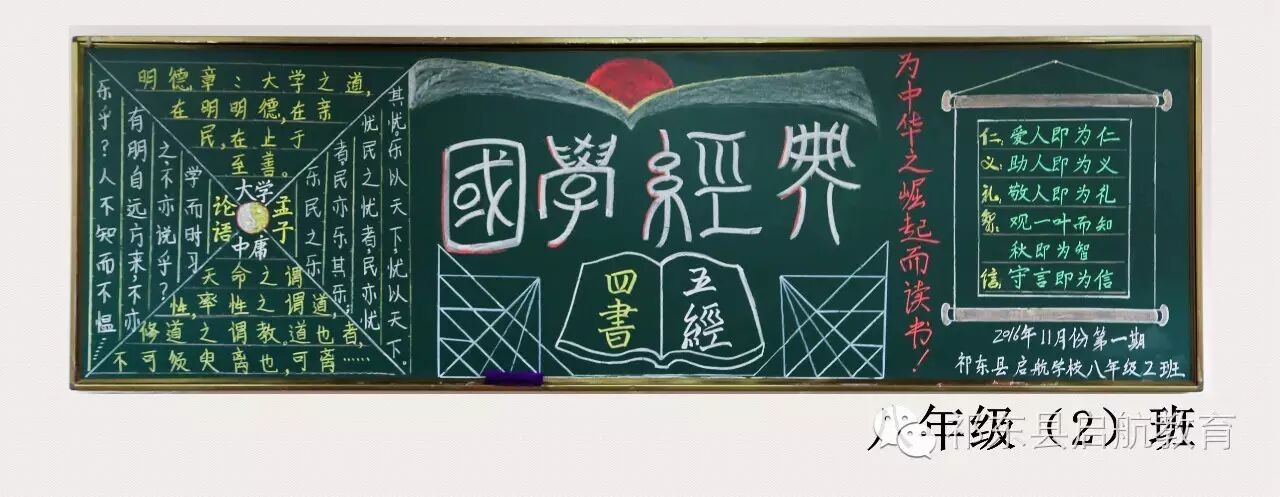 明德章：大学之道，
在明明德，在亲
民，在上于
至善。
学而时习
之，不亦说乎？
有明自远方来，不亦
乐乎？人不知而不愠……
大学
论语
孟子
中庸
乐民之乐
者，民亦乐其乐；
忧民之忧者，民亦忧
其忧。乐以天下，忧以天下。
天命之谓
性，率性之谓道，
修道之谓教，道也者，
不可须臾离也，可离……
國學經典
四書
五經
为中华之崛起而读书！
仁：爱人即为仁
义：助人即为义
礼：敬人即为礼
智：观一叶而知
秋即为智
信：守言即为信
2016年11月份第一期
祁东县启航学校八年级2班
八年级（2）班
祁东县启航教育